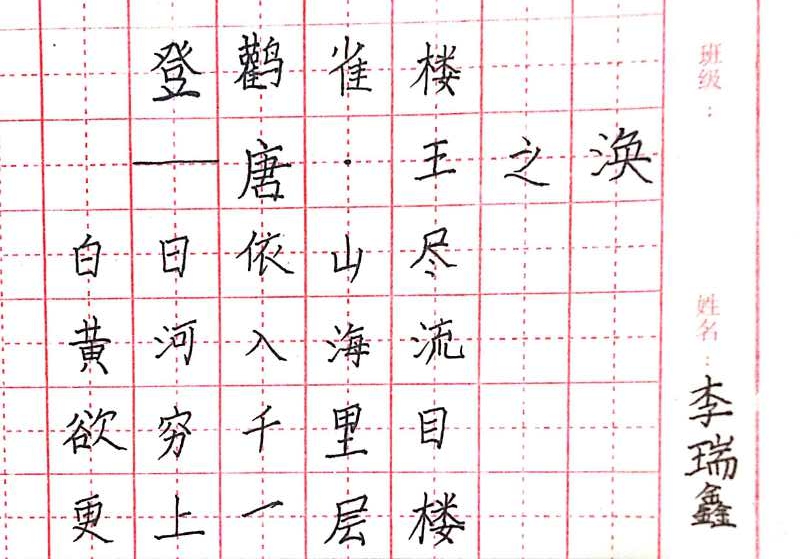 登鹳雀楼
——唐·王之涣
白日依山尽
黄河入海流
欲穷千里目
更上一层楼
班级：
姓名：李瑞鑫